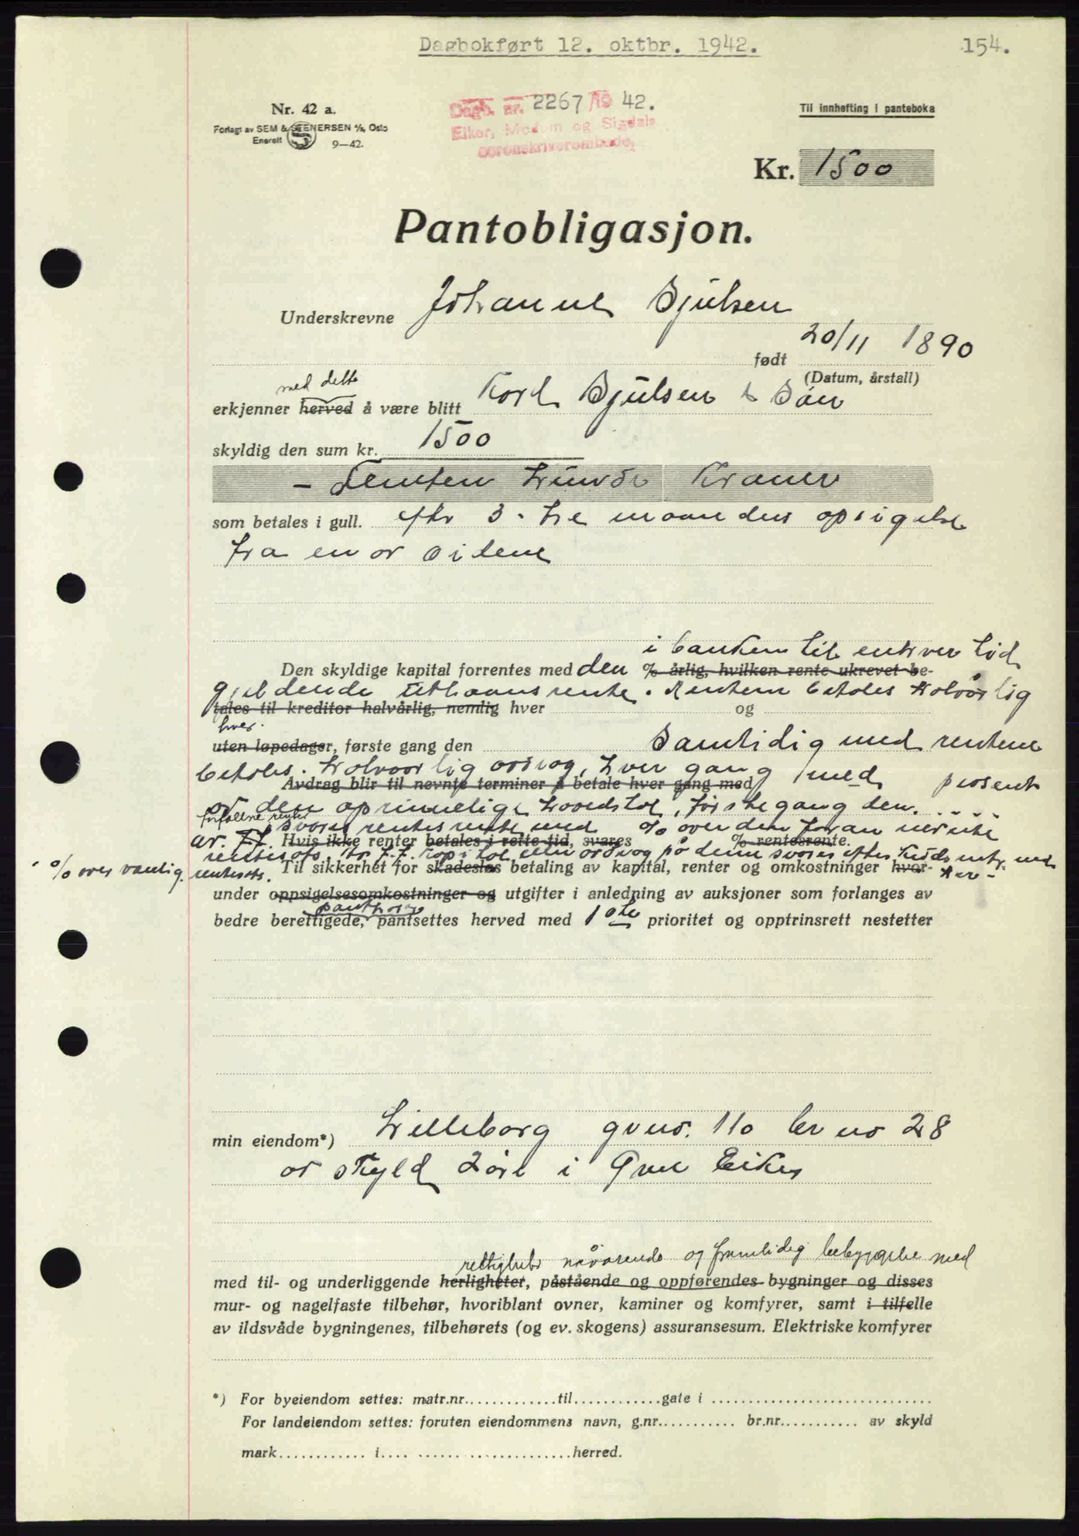 Dagbokført 12. oktbr. 1942.
154.
Nr. 42 a.
Forlagt av SEM & STENERSEN A/S, Oslo
Enerett
9—42.
Dagb. nr. 2267/19 42.
Eiker, Modum og Sigdals
sorenskriverembede,
Til innhefting i panteboka
Kr. 1500
Pantobligasjon.
Underskrevne Johannes Bjülsen
født 20/11 1890
(Datum, årstall)
med dette
erkjenner herved å være blitt Bjülsen & Søn
skyldig den sum kr. 1500
- Femten Hundre Kroner
som betales i gull. efter 3 - tre maaneders opsigelse
fra en av sidene
i banken til enhver tid
Den skyldige kapital forrentes med den % årlig, hvilken rente ukrevet be-
gjeldende utlaansrente. Rentene betales halvårlig
tales til kreditor halvårlig, nemlig hver og
hver.
uten løpedager, første gang den Samtidig med rentene
betales halvaarlig avdrag, hver gang med prosent
Avdrag blir til nevnte terminer å betale hver gang med
av den oprinnelige hovedstol, første gang den.....
forfallne renter
svares rentesrente med % over den foran nevnte
Hvis ikke renter betales i rette tid, svares % rentesrente.
rentesats. for f.f. kapital eller avdrag på denne svares efter
% over vanlig rentesats. Til sikkerhet for skadesløs betaling av kapital, renter og omkostninger hver-
under oppsigelsesomkostninger og utgifter i anledning av auksjoner som forlanges av
panthavere
bedre berettigede, pantsettes herved med 1ste prioritet og opptrinsrett nestetter
min eiendom*) Lilleborg gvnr. 110 br no 28
av skyld 2 øre i Øvre Eiker
rettigheter nåværende og fremtidig bebyggelse med
med til- og underliggende herligheter, påstående og oppførendes bygninger og disses
mur- og nagelfaste tilbehør, hvoriblant ovner, kaminer og komfyrer, samt i tilfelle
av ildsvåde bygningenes, tilbehørets (og ev. skogens) assuransesum. Elektriske komfyrer
*) For byeiendom settes: matr.nr..............til.............gate i ................................
For landeiendom settes: foruten eiendommens navn, g.nr............ br.nr............ av skyld
mark............. i.... ...... ......................herred.